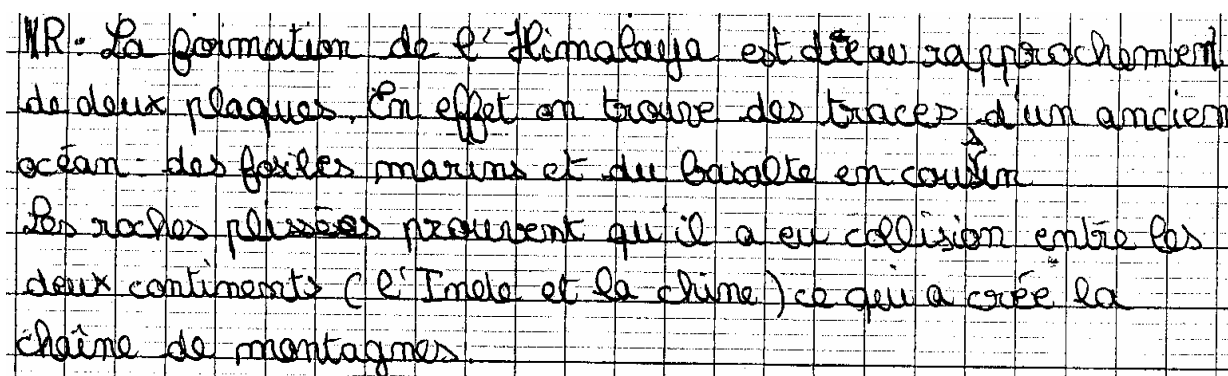 NR. La formation de l'Himalaya est dûe au rapprochement
de deux plaques. En effet on trouve des traces d'un ancien
océan - des fosiles marins et du basalte en coussin
Les roches plissées prouvent qu'il a eu collision entre les
deux continents (l'Inde et la chine) ce qui a crée la
chaîne de montagnes.